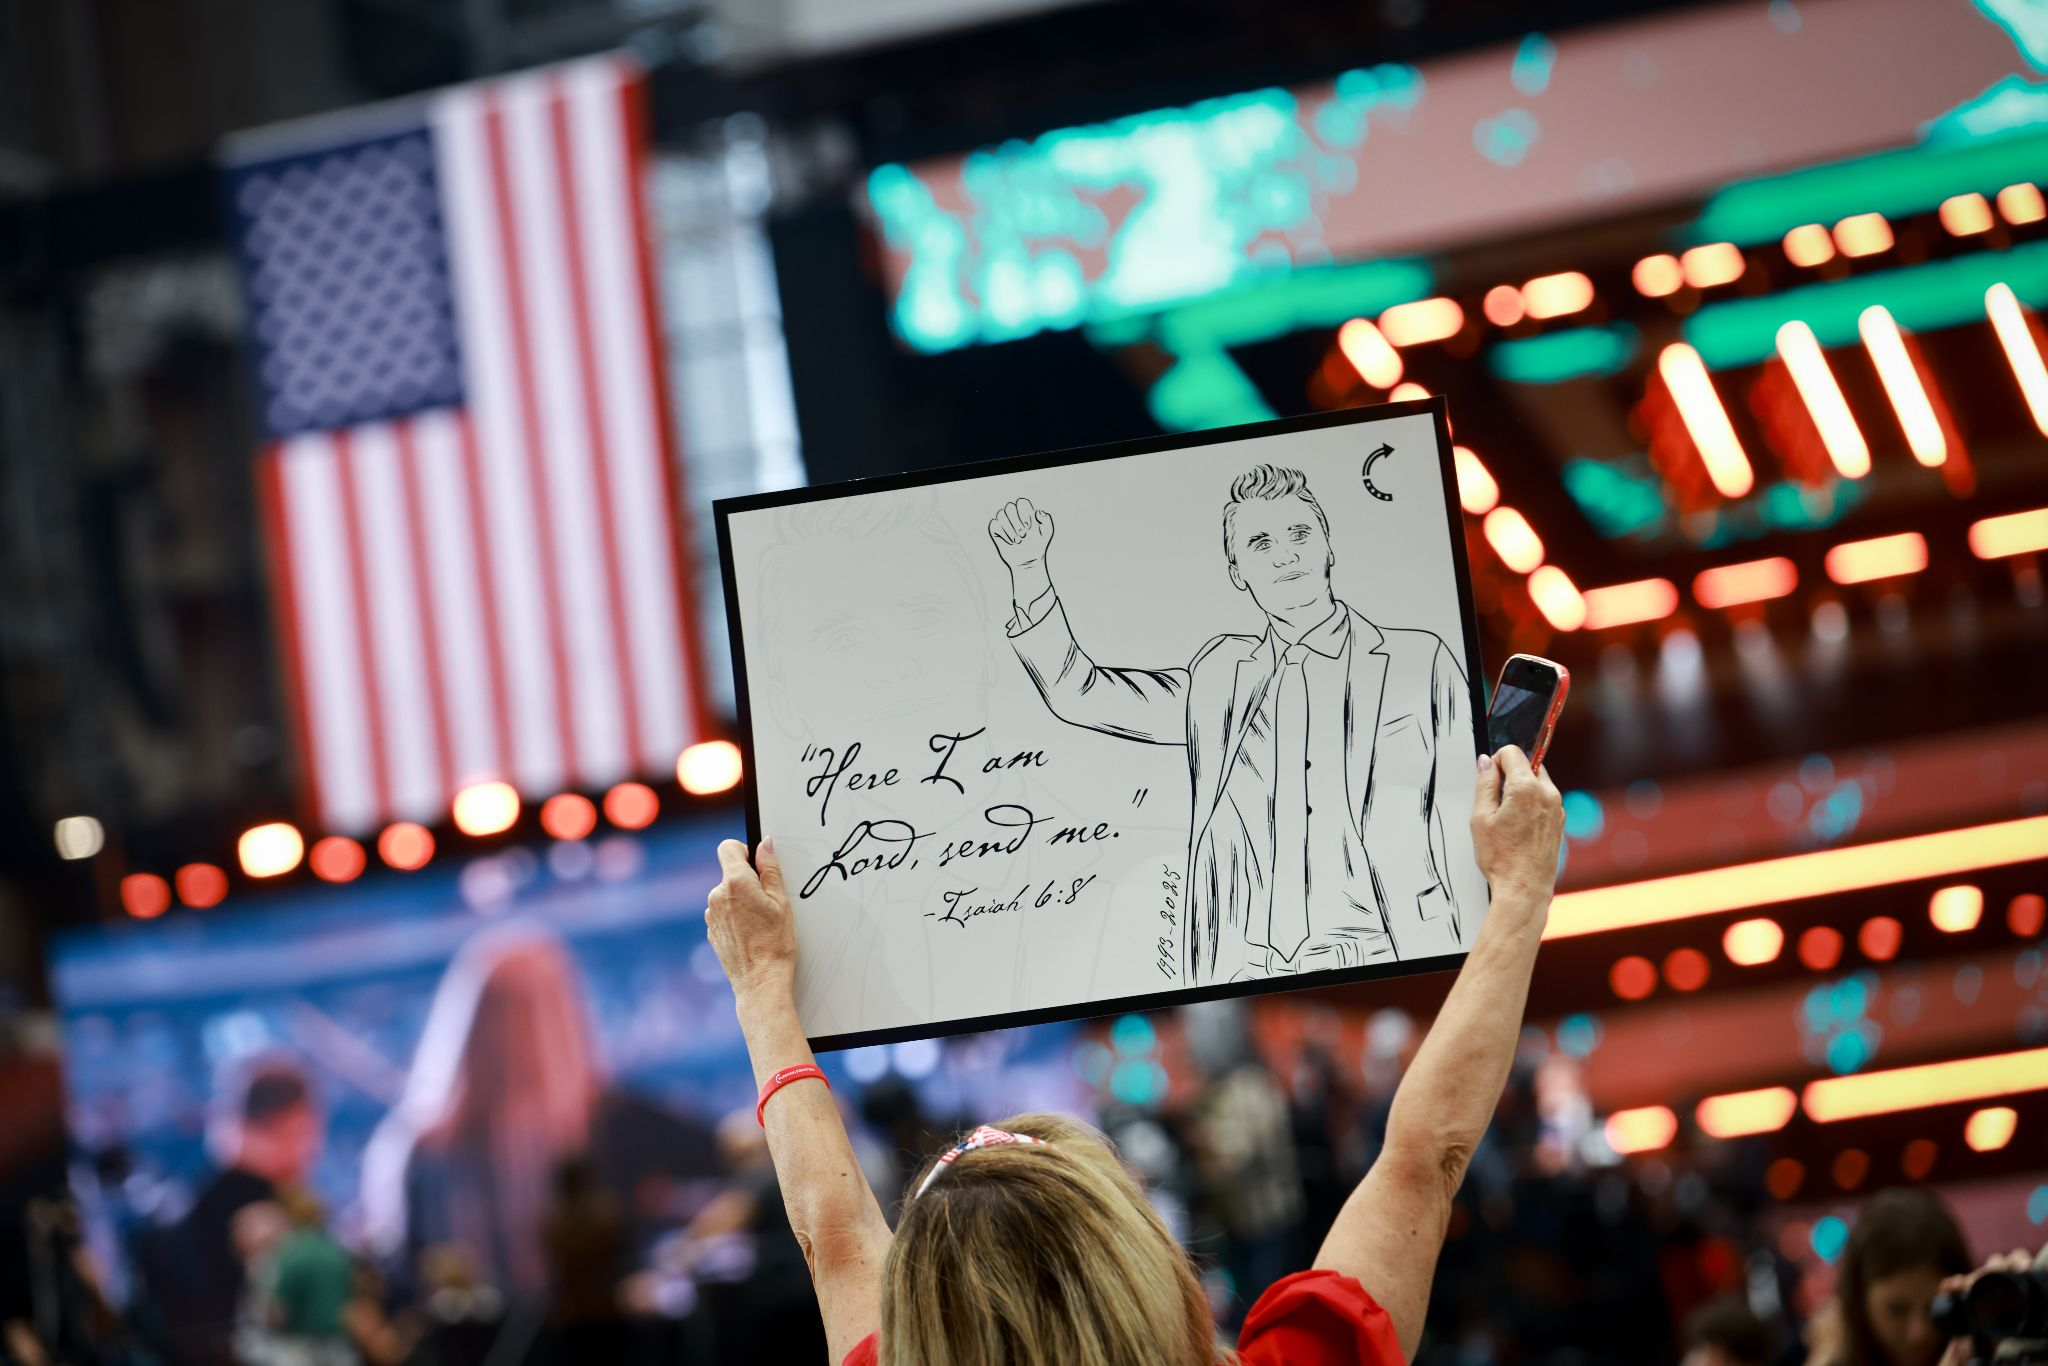 "Here I am
Lord, send me."
-Isaiah 6:8
1993-2025